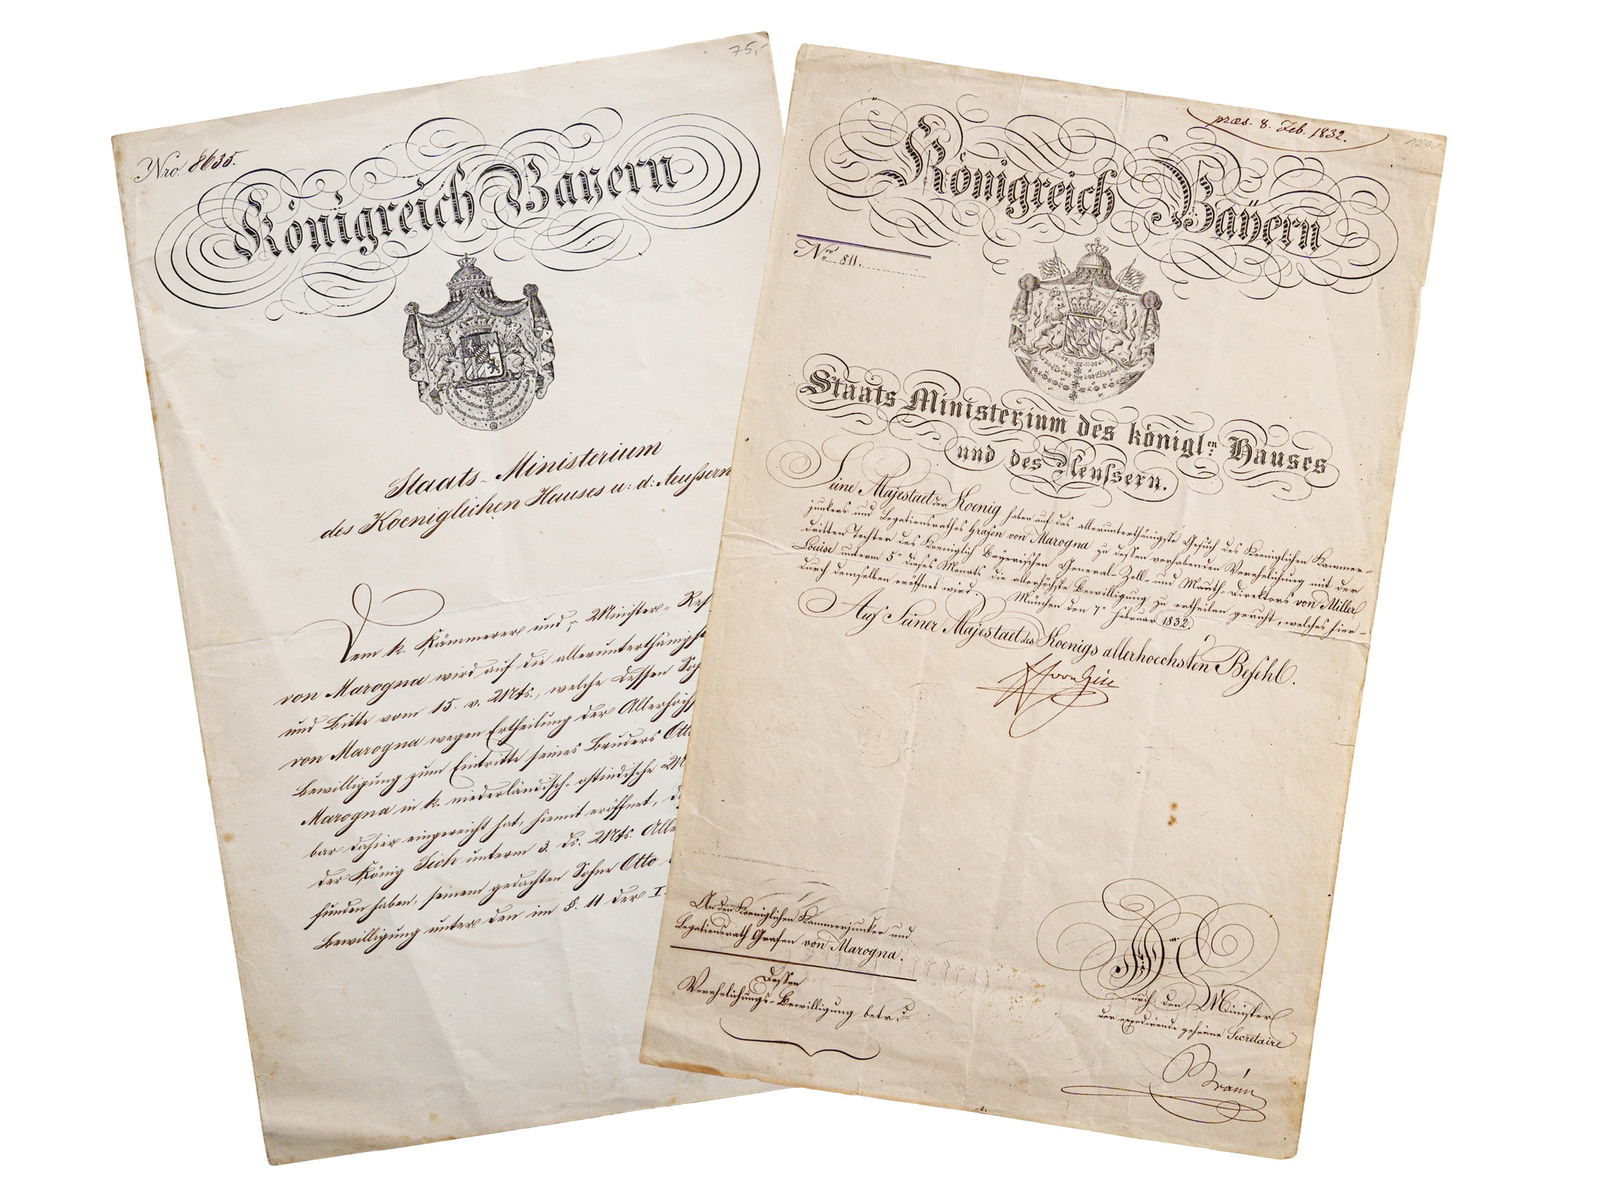 75,-
Nro. 8635.
Königreich Bayern
Staats-Ministerium
des Koeniglichen Hauses u: d: Aeussern
Dem k. Kämmerer und Minister-Res
von Marogna wird auf die allerunterthänigst
und Bitte vom 15. v. Mts., welche dessen
von Marogna wegen Ertheilung der Allerhöchs
Bewilligung zum Eintritte seines Bruders Otto
Marogna in k. niederländisch-ostindische
bar dahier eingereicht hat, hiemit eröffnet,
der König Sich unterm 3. ds. Mts. Alle
funden haben, seinem gedachten Sohne Otto
Bewilligung unter den im §. 11 der I.
præs. 8. Feb. 1832.
Königreich Bayern
Nro. 811.
Staats Ministerium des königl.en Hauses
und des Aeussern.
Seine Majestaet der Koenig haben auf das allerunterthänigste Gesuch des Koeniglichen Kammer-
junkers und Legationsrathes Grafen von Marogna zu dessen vorhabenden Verehelichung mit der
dritten Tochter des Koeniglich Bayerischen General-Zoll- und Mauth-Direktors von Miller
Louise unterm 5n dieses Monats die allerhöchste Bewilligung zu ertheilen geruht, welches hier-
durch demselben eröffnet wird. München den 7n Februar 1832.
Auf Seiner Majestaet des Koenigs allerhoechsten Befehl.
An den Koeniglichen Kammerjunker und
Legationsrath Grafen von Marogna.
Dessen
Verehelichungs-Bewilligung betr.d
Durch den Minister
der expedirende geheime Secretaire